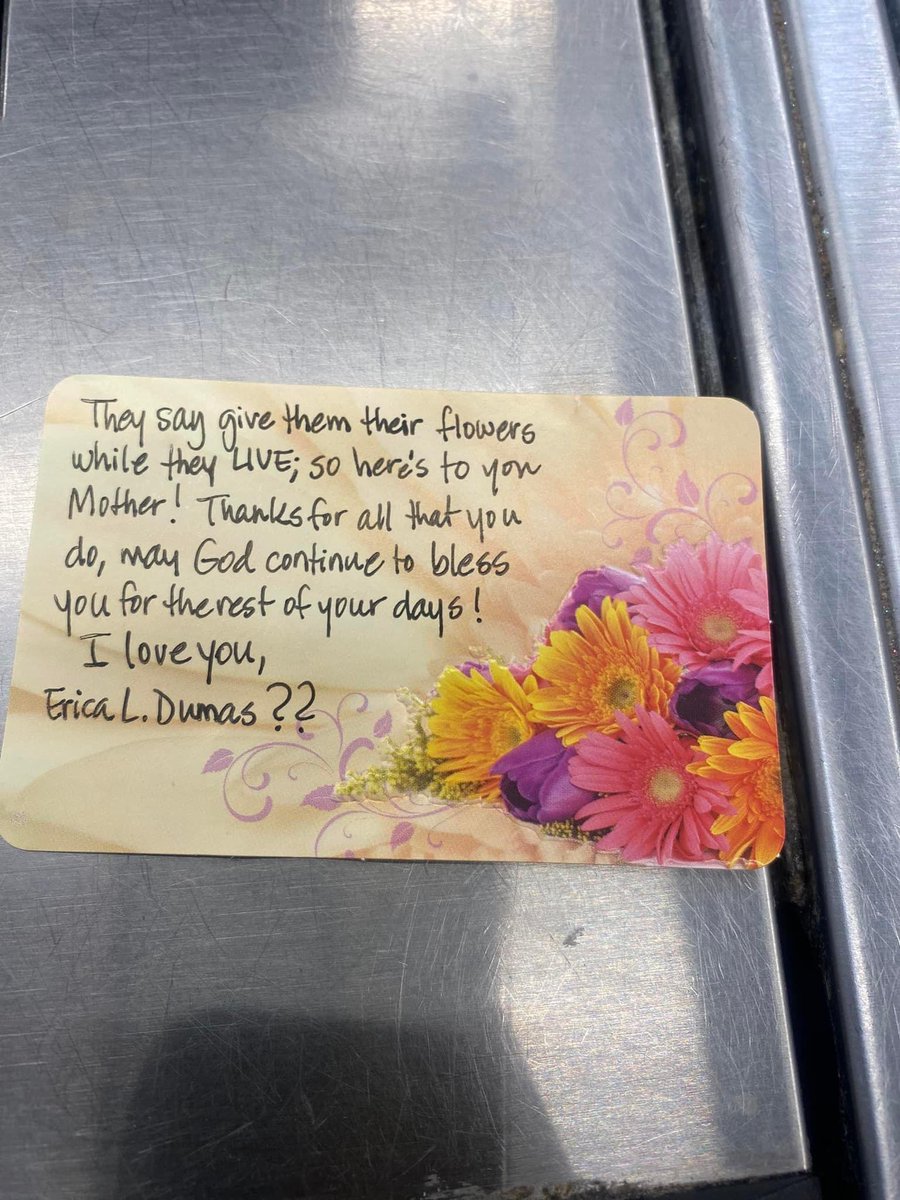 They say give them their flowers
while they LIVE; so here's to you
Mother! Thanks for all that you
do, may God continue to bless
you for the rest of your days!
I love you,
Erica L. Dumas ??